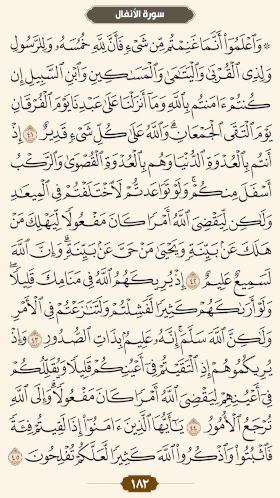 سورة الأنفال
۞ وَٱعۡلَمُوٓاْ أَنَّمَا غَنِمۡتُم مِّن شَيۡءٖ فَأَنَّ لِلَّهِ خُمُسَهُۥ وَلِلرَّسُولِ
وَلِذِي ٱلۡقُرۡبَىٰ وَٱلۡيَتَٰمَىٰ وَٱلۡمَسَٰكِينِ وَٱبۡنِ ٱلسَّبِيلِ إِن
كُنتُمۡ ءَامَنتُم بِٱللَّهِ وَمَآ أَنزَلۡنَا عَلَىٰ عَبۡدِنَا يَوۡمَ ٱلۡفُرۡقَانِ
يَوۡمَ ٱلۡتَقَى ٱلۡجَمۡعَانِۗ وَٱللَّهُ عَلَىٰ كُلِّ شَيۡءٖ قَدِيرٌ ٤١ إِذۡ
أَنتُم بِٱلۡعُدۡوَةِ ٱلدُّنۡيَا وَهُم بِٱلۡعُدۡوَةِ ٱلۡقُصۡوَىٰ وَٱلرَّكۡبُ
أَسۡفَلَ مِنكُمۡۚ وَلَوۡ تَوَاعَدتُّمۡ لَٱخۡتَلَفۡتُمۡ فِي ٱلۡمِيعَٰدِ
وَلَٰكِن لِّيَقۡضِيَ ٱللَّهُ أَمۡرٗا كَانَ مَفۡعُولٗا لِّيَهۡلِكَ مَنۡ
هَلَكَ عَنۢ بَيِّنَةٖ وَيَحۡيَىٰ مَنۡ حَيَّ عَنۢ بَيِّنَةٖۗ وَإِنَّ ٱللَّهَ
لَسَمِيعٌ عَلِيمٌ ٤٢ إِذۡ يُرِيكَهُمُ ٱللَّهُ فِي مَنَامِكَ قَلِيلٗاۖ
وَلَوۡ أَرَىٰكَهُمۡ كَثِيرٗا لَّفَشِلۡتُمۡ وَلَتَنَٰزَعۡتُمۡ فِي ٱلۡأَمۡرِ
وَلَٰكِنَّ ٱللَّهَ سَلَّمَۚ إِنَّهُۥ عَلِيمُۢ بِذَاتِ ٱلصُّدُورِ ٤٣ وَإِذۡ
يُرِيكُمُوهُمۡ إِذِ ٱلۡتَقَيۡتُمۡ فِيٓ أَعۡيُنِكُمۡ قَلِيلٗا وَيُقَلِّلُكُمۡ
فِيٓ أَعۡيُنِهِمۡ لِيَقۡضِيَ ٱللَّهُ أَمۡرٗا كَانَ مَفۡعُولٗاۗ وَإِلَى ٱللَّهِ
تُرۡجَعُ ٱلۡأُمُورُ ٤٤ يَٰٓأَيُّهَا ٱلَّذِينَ ءَامَنُوٓاْ إِذَا لَقِيتُمۡ فِئَةٗ
فَٱثۡبُتُواْ وَٱذۡكُرُواْ ٱللَّهَ كَثِيرٗا لَّعَلَّكُمۡ تُفۡلِحُونَ ٤٥
١٨٢